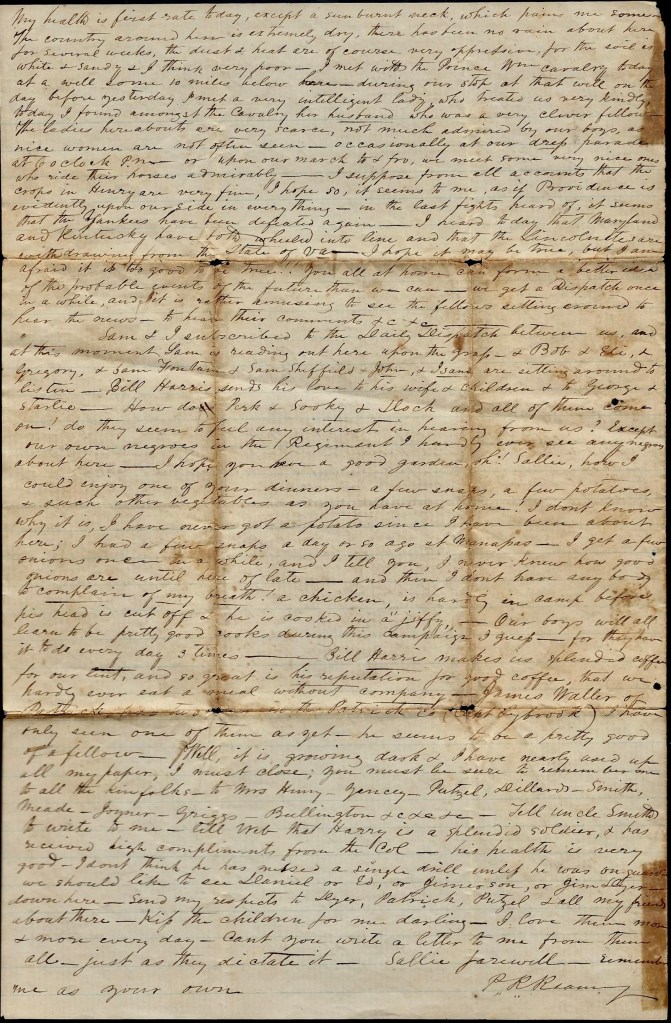 My health is first rate today, except a sunburnt neck, which pains me some
The country around here is extremely dry, there has been no rain about here
for several weeks, the dust & heat are of course very oppressive, for the soil is
white & sandy & I think very poor — I met with the Prince Wm cavalry today
at a well some 10 miles below here — during our stop at that well on the
day before yesterday I met a very intelligent lady, who treated us very kindly
today I found amongst the Cavalry her husband who was a very clever fellow —
The ladies hereabouts are very scarce, not much admired by our boys, as
nice women are not often seen — occasionally at our dress parade
at 6 oclock P.m — or upon our march to & fro, we meet some very nice ones
who ride their horses admirably — I suppose from all accounts that the
crops in Henry are very fine, I hope so, it seems to me, as if Providence is
evidently upon our side in everything — in the last fights heard of, it seems
that the Yankees have been defeated again — I heard today that Maryland
and Kentucky have both wheeled into line and that the Lincolnites are
withdrawing from the State of Va — I hope it may be true, but I am
afraid it is too good to be true. You all at home can form a better idea
of the probable events of the future than we can — we get a Dispatch once
in a while, and it is rather amusing to see the fellows sitting around to
hear the news — to hear their comments &c &c
Sam & I subscribed to the Daily Dispatch between us, and
at this moment Sam is reading out here upon the grass — & Bob & Ed, &
Gregory, & Sam & Sam Sheffield & John, & Isaac are sitting around to
listen — Bill Harris sends his love to his wife & children & to George &
Starlie — How does Perk & Sooky & Dock and all of them come
on? do they seem to feel any interest in hearing from us? Except
our own negroes in the Regiment I hardly ever see any negroes
about here — I hope you have a good garden, oh! Sallie, how I
could enjoy one of your dinners — a few snaps, a few potatoes,
& such other vegetables as you have at home! I dont know
why it is, I have never got a potato since I have been about
here; I had a few snaps a day or so ago at Manapas — I get a few
onions once in a while, and I tell you, I never knew how good
onions are until here of late — and then I dont have any body
to complain of my breath! a chicken, is hardly in camp before
his head is cut off & he is cooked in a "jiffy" — Our boys will all
learn to be pretty good cooks during this campaign I guess — for they have
it to do every day 3 times — Bill Harris makes us splendid coffee
for our tent, and so great is his reputation for good coffee, that we
hardly ever eat a meal without company — James Waller of
in the Patrick Co I have
only seen one of them as yet — he seems to be a pretty good
of a fellow — Well, it is growing dark & I have nearly used up
all my paper, I must close, you must be sure to remember me
to all the kinfolks — to Mrs Henry — Yancey — Putzel, Dillards — Smith,
Meade — Joyner — Griggs — Bullington &c &c &c — Tell uncle Smith
to write to me — tell Web that Harry is a splendid soldier, & has
received high compliments from the Col — his health is very
good — I dont think he has missed a single drill unless he was on guard
we should like to see Daniel or Ed, or Jimerson, or Jim
down here — Send my respects to Dyer, Patrick, Putzel & all my friends
about there — Kiss the children for me darling — I love them more
& more every day — Cant you write a letter to me from them
all — just as they dictate it — Sallie farewell — remember
me as your own P. R. Reamy